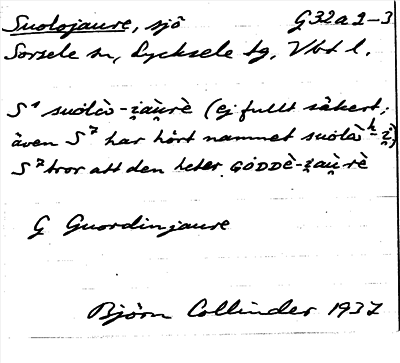 Suolojaure, sjö G32a2-3
Sorsele sn, Lycksele tg, Vbt l.
S¹ suölà-ʒ̜aù̯rè (ej fullt säkert;
även S² har hört namnet suölàʰ-ʒ̜)
S² tror att den heter GÓDDÈ-ʒ̜aù̯rè
G Guordinjaure
Björn Collinder 1937